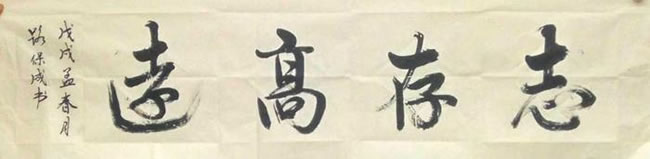 志存高遠
戊戌孟春月
路保成书